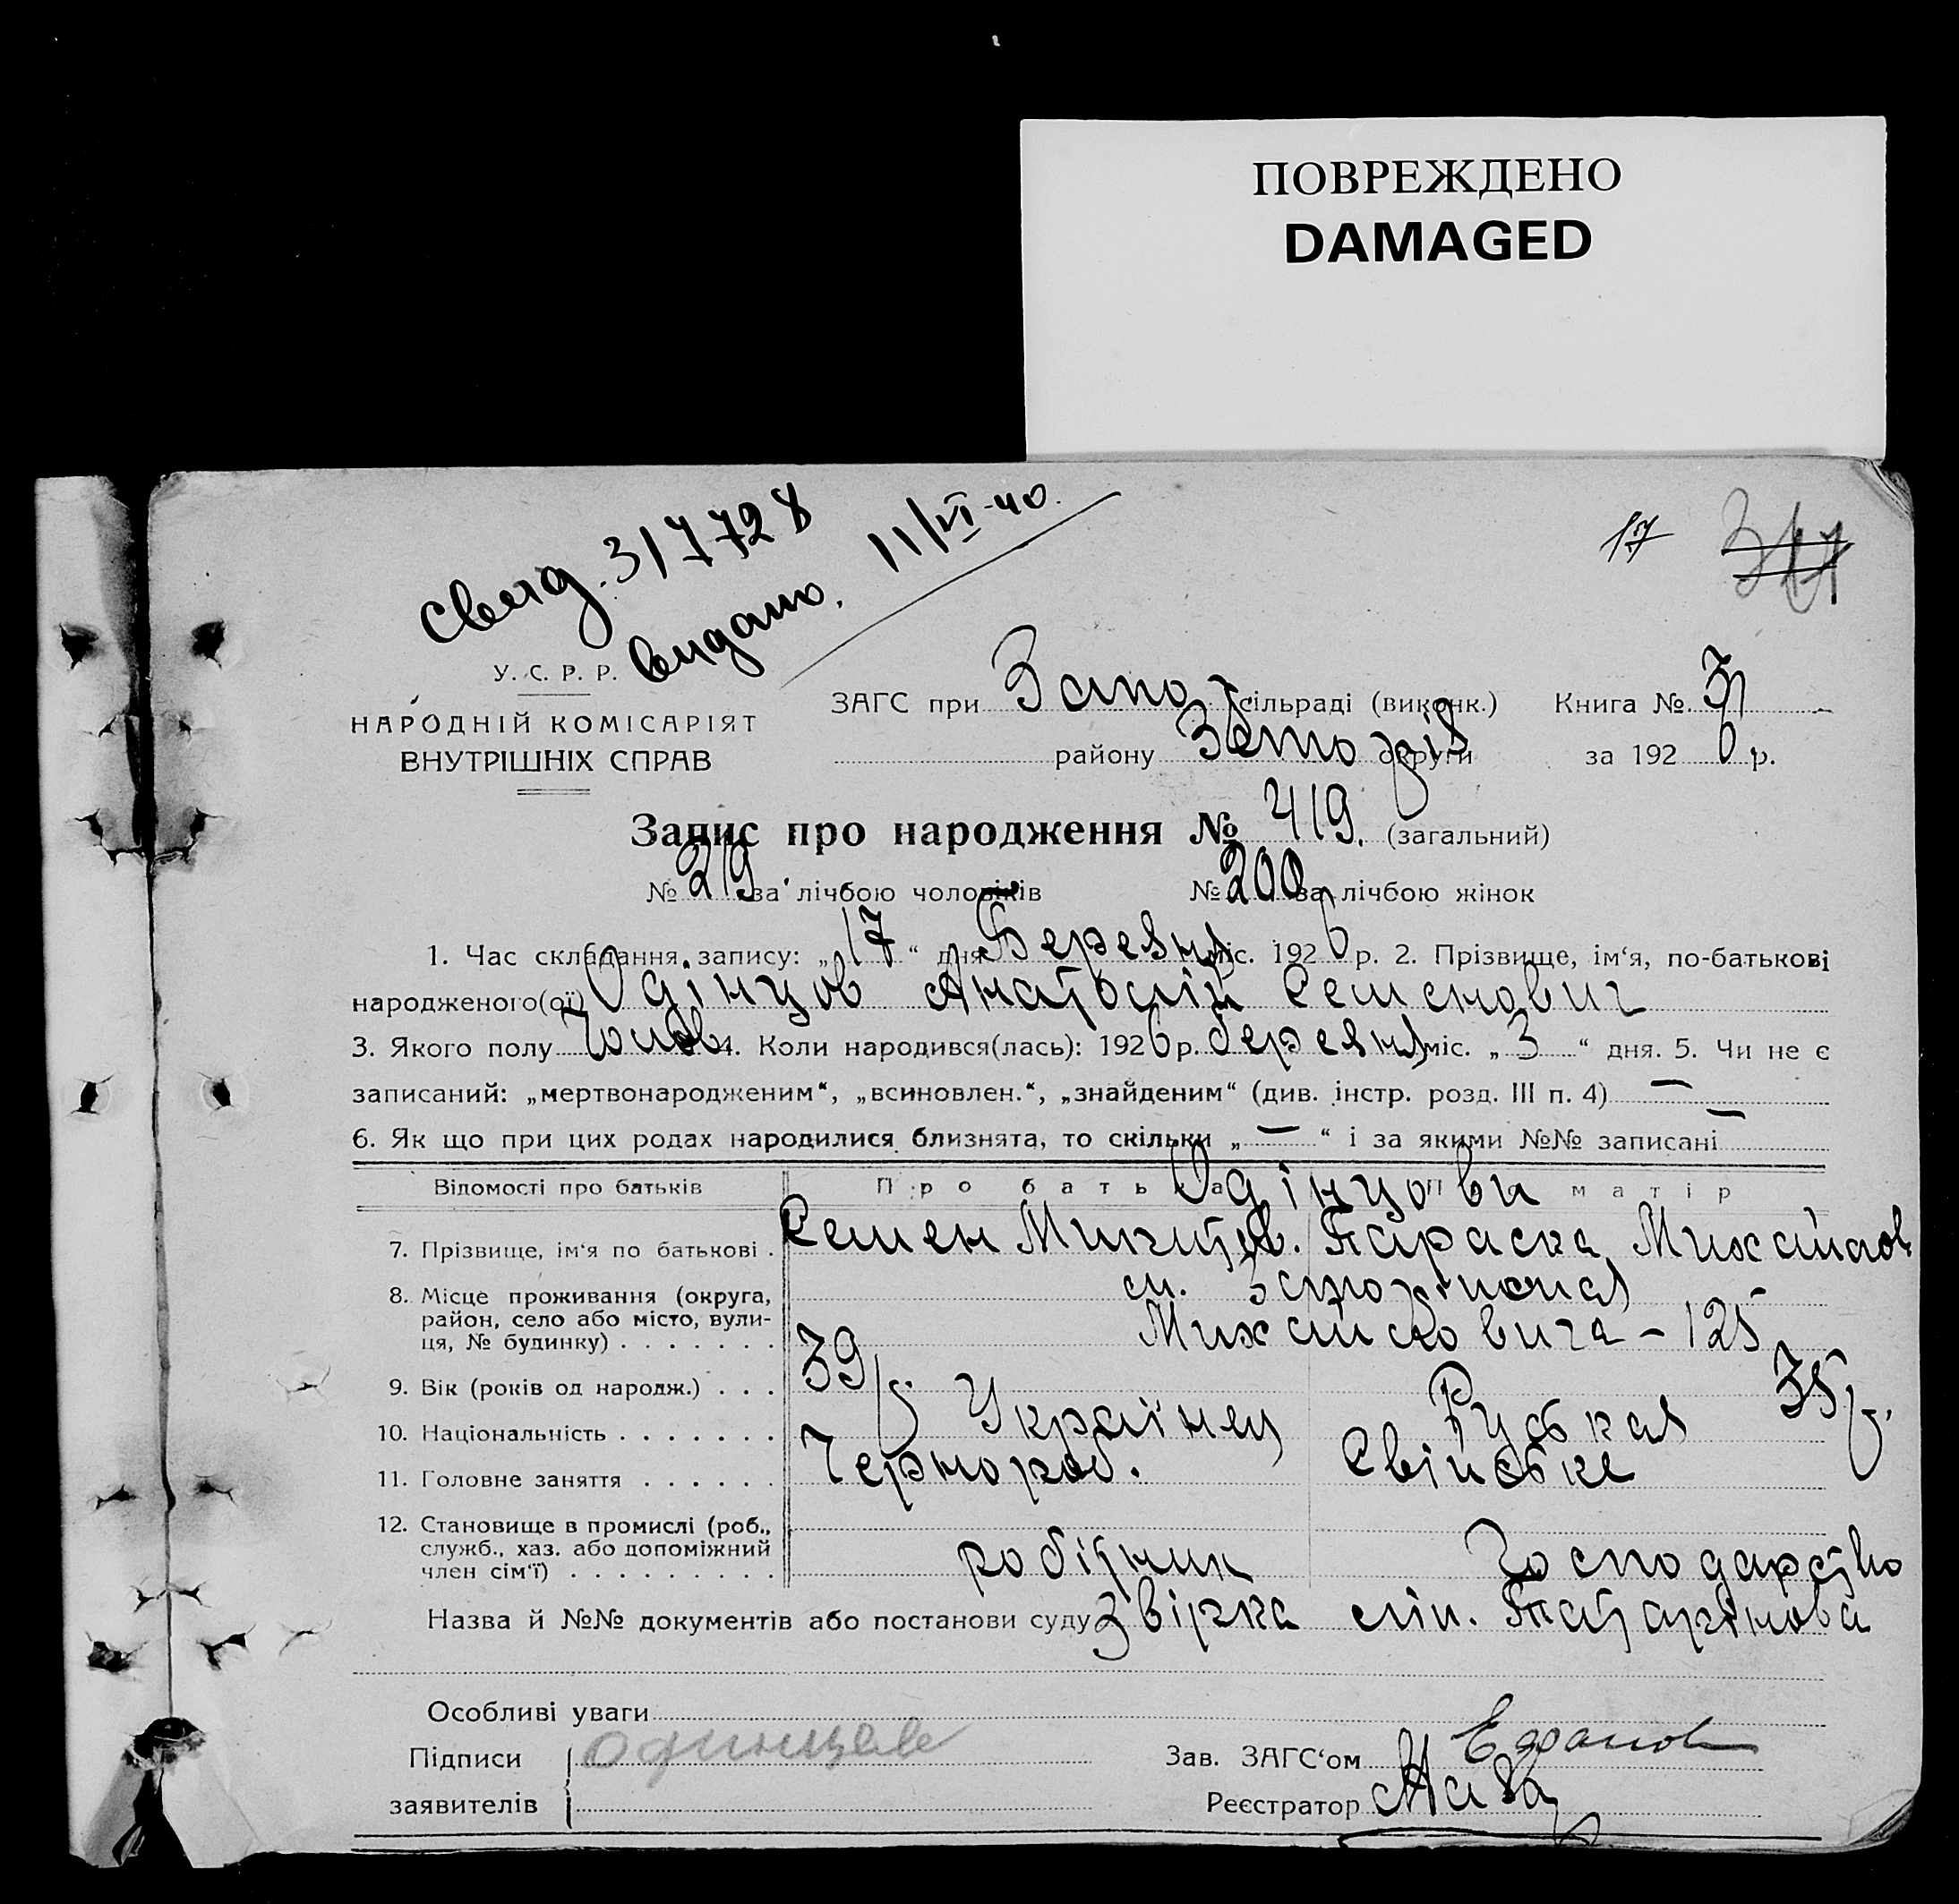 ПОВРЕЖДЕНО
DAMAGED
свид. 317728
видано. 11/VI-40.
17
У. С. Р. Р.
НАРОДНІЙ КОМІСАРІЯТ
ВНУТРІШНІХ СПРАВ
ЗАГС при Запо сільраді (виконк.) Книга №
району округи за 1926 р.
Запис про народження № 419. (загальний)
№ 219 за лічбою чоловіків № 200 за лічбою жінок
1. Час складання запису: „17“ дня Березня міс. 1926 р. 2. Прізвище, ім‘я, по-батькові
народженого(ої) Одінцов Анатолій Семенович
3. Якого полу Чолов 4. Коли народився(лась): 1926 р. березня міс. „3“ дня. 5. Чи не є
записаний: „мертвонародженим“, „всиновлен.“, „знайденим“ (див. інстр. розд. III п. 4) —
6. Як що при цих родах народилися близнята, то скільки „—“ і за якими №№ записані —
Відомості про батьків Про батька Про матір
Одінцови
7. Прізвище, ім‘я по батькові . Семен Микитов. Параска Михайлов
8. Місце проживання (округа,
район, село або місто, вули-
ця, № будинку) . . . . . . . Михайловича - 125
9. Вік (років од народж.) . . . 39 35
10. Національність . . . . . . . Українец Руськая
11. Головне заняття . . . . . . Чорнороб. Свійське
12. Становище в промислі (роб.,
служб., хаз. або допоміжний
член сім‘ї) . . . . . . . . . робітник Господарство
Назва й №№ документів або постанови суду Звірка
Особливі уваги
Підписи одинцов Зав. ЗАГС‘ом
заявителів Реєстратор